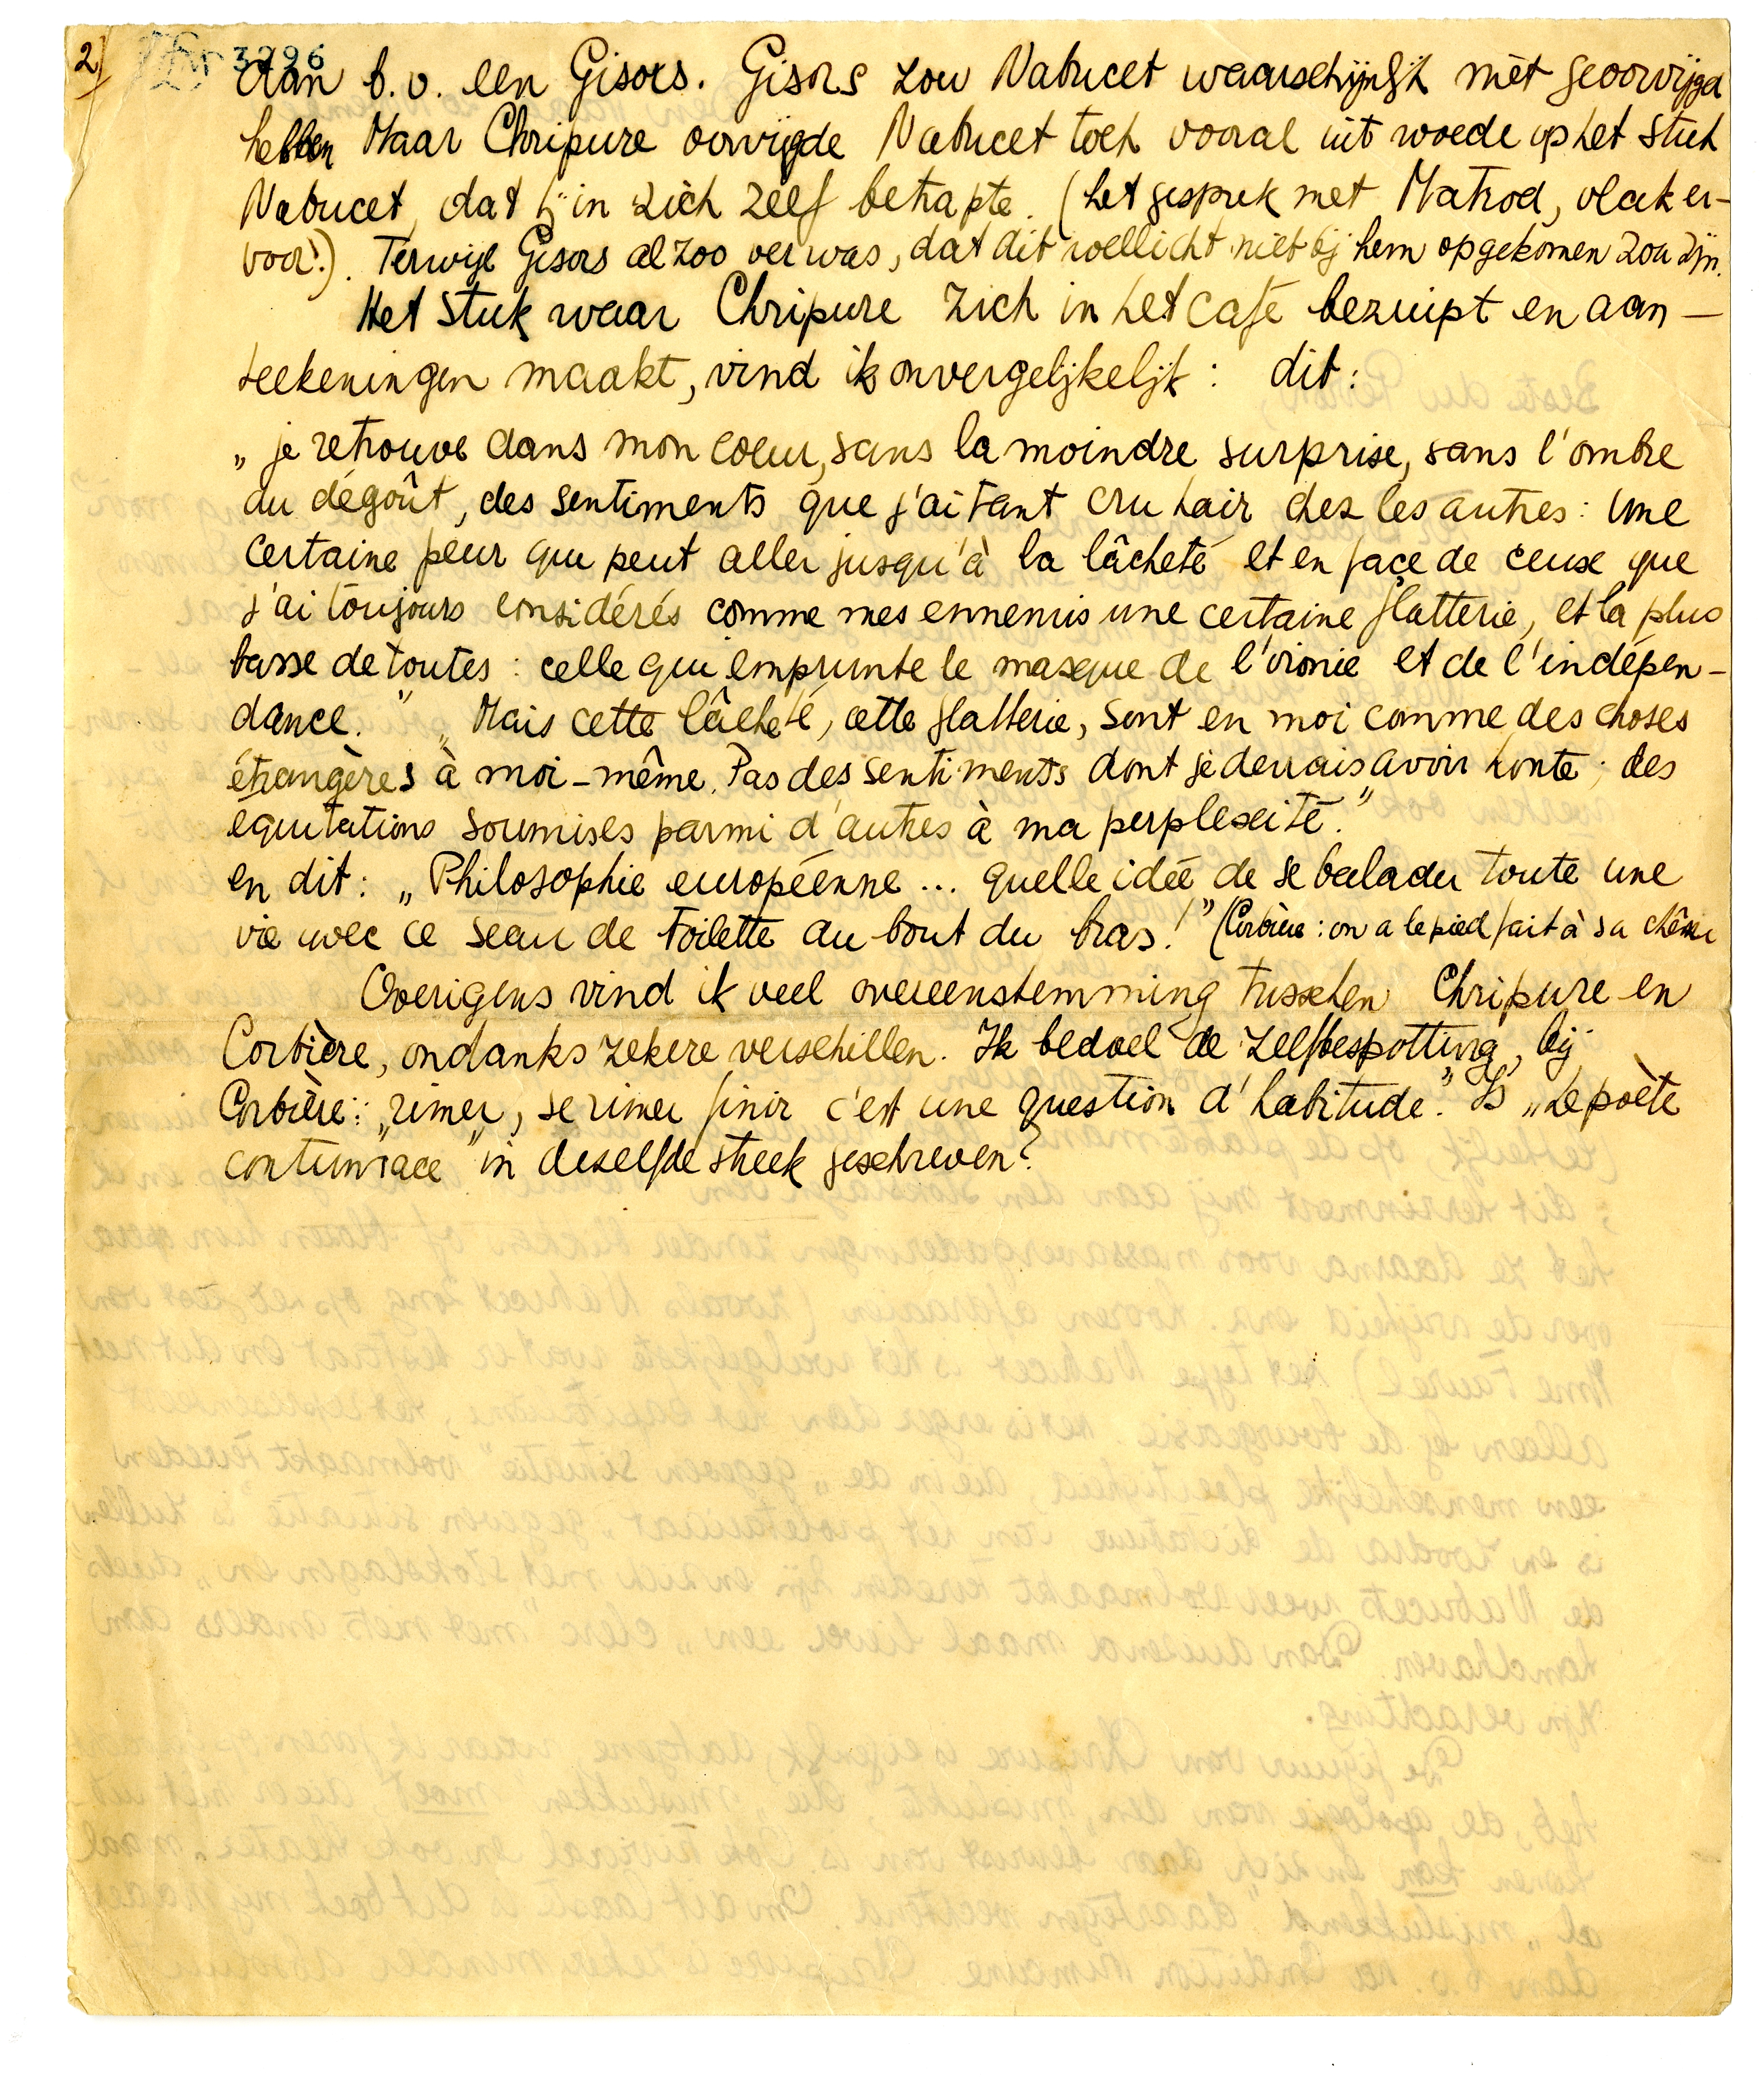 2)
3296
dan b.v. een Gisors. Gisors zou Nabucet waarschijnlijk niet geoorvijgd
hebben Maar Chripure oorvijgde Nabucet toch vooral uit woede op het stuk
Nabucet, dat hij in zich zelf betrapte. (het gesprek met Matrod, vlak er-
voor!). Terwijl Gisors al zoo ver was, dat dit wellicht niet bij hem opgekomen zou zijn.
Het stuk waar Chripure zich in het café bezuipt en aan-
teekeningen maakt, vind ik onvergelijkelijk: dit:
„je retrouve dans mon coeur, sans la moindre surprise, sans l'ombre
du dégoût, des sentiments que j'ai tant cru haïr chez les autres: une
certaine peur qui peut aller jusqu'à la lâcheté et en face de ceux que
j'ai toujours considérés comme mes ennemis une certaine flatterie, et la plus
basse de toutes: celle qui emprunte le masque de l'ironie et de l'indépen-
dance." „Mais cette lâcheté, cette flatterie, sont en moi comme des choses
étrangères à moi-même. Pas des sentiments dont je devrais avoir honte; des
equitations soumises parmi d'autres à ma perplexité."
en dit: „Philosophie européenne... quelle idée de se balader toute une
vie avec ce seau de toilette au bout du bras!" (Corbière: on a le pied fait à sa chaîne
Overigens vind ik veel overeenstemming tusschen Chripure en
Corbière, ondanks zekere verschillen. Ik bedoel de zelfbespotting, bij
Corbière: „rimer, se rimer finir c'est une question d'habitude." Is „Le poète
contumace" in dezelfde streek geschreven?